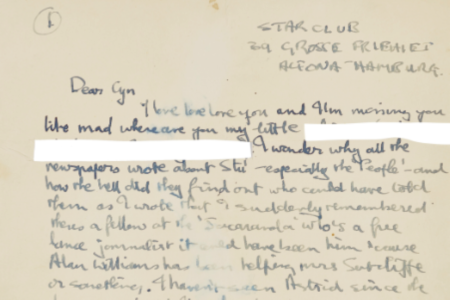 1
STAR CLUB
39 GROSSE FREIHEIT
ALTONA HAMBURG.
Dear Cyn
I love love love you and I'm missing you
like mad where are you my little
I wonder why all the
newspapers wrote about Stu - especially the 'People' - and
how the hell did they find out who could have told
them as I wrote that I suddenly remembered
theres a fellow at the 'Jacaranda' who's a free
lance journalist it could have been him 'cause
Alan Williams has been helping mrs Sutcliffe
or something. I haven't seen Astrid since